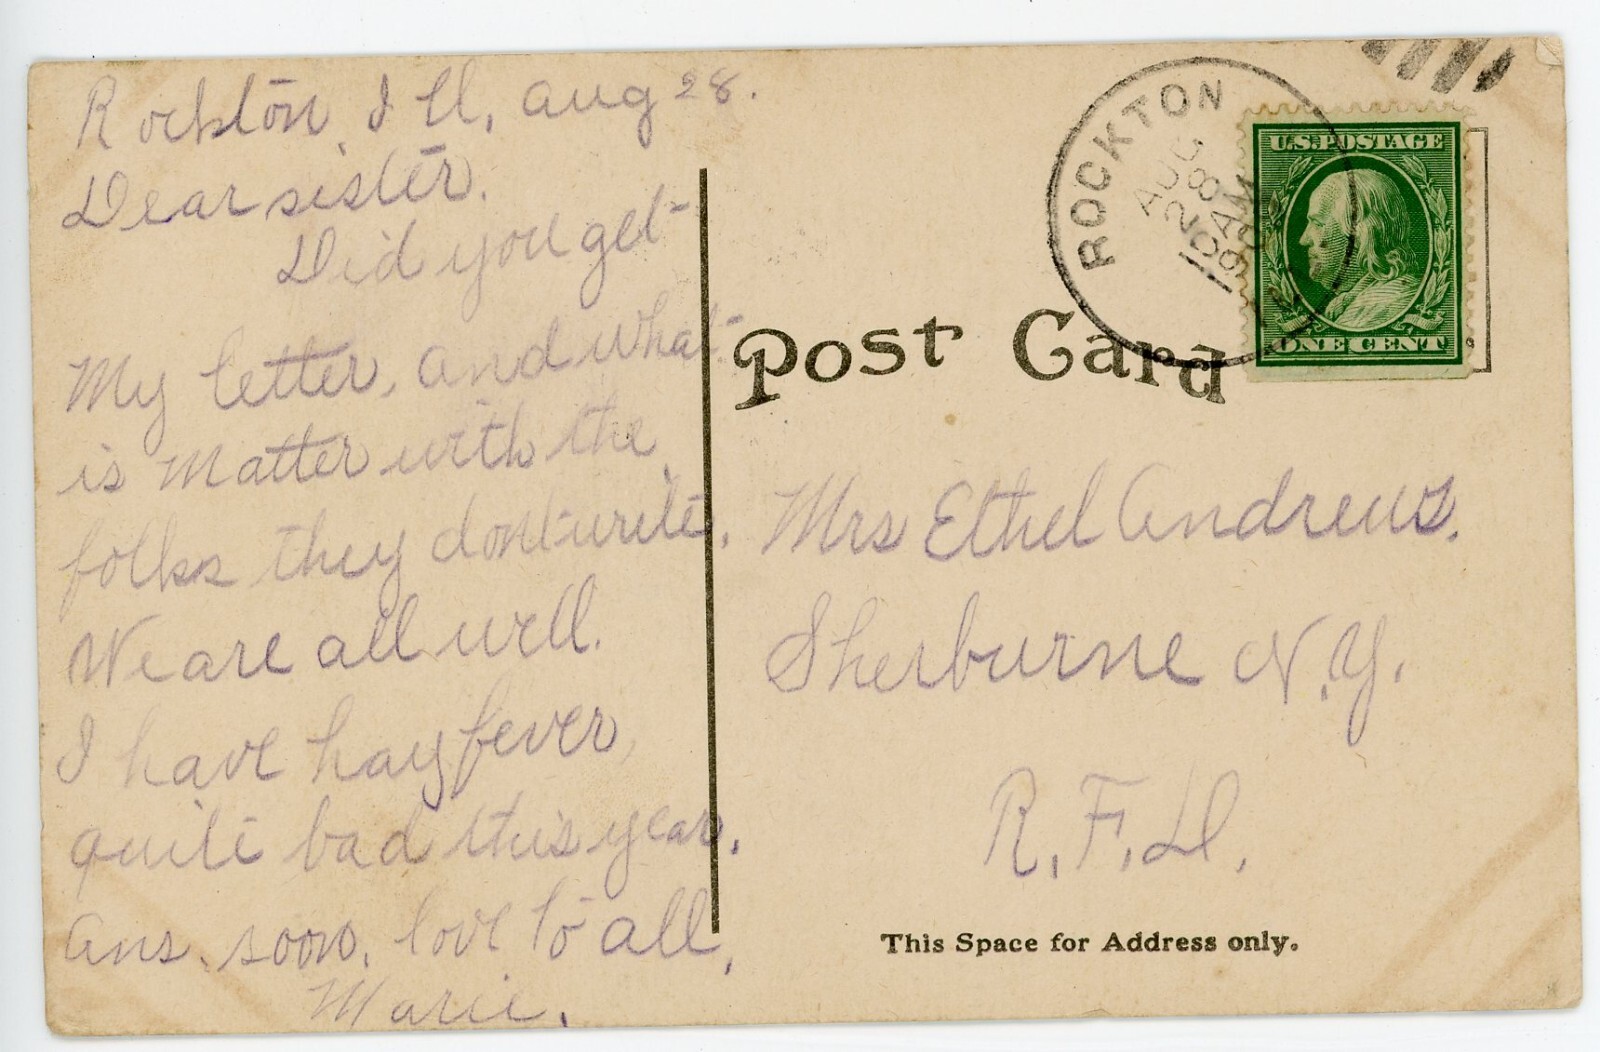 Rockton, Ill, Aug 28.
Dear sister.
Did you get
My letter, and what
is Matter with the
folks they dont write.
We are all well.
I have hay fever,
quite bad this year.
Ans. soon. love to all,
Marie.
Post Card
ROCKTON
AUG
28
10AM
U.S. POSTAGE
ONE CENT
Mrs Ethel Andrews.
Sherburne N.Y.
R.F.D.
This Space for Address only.